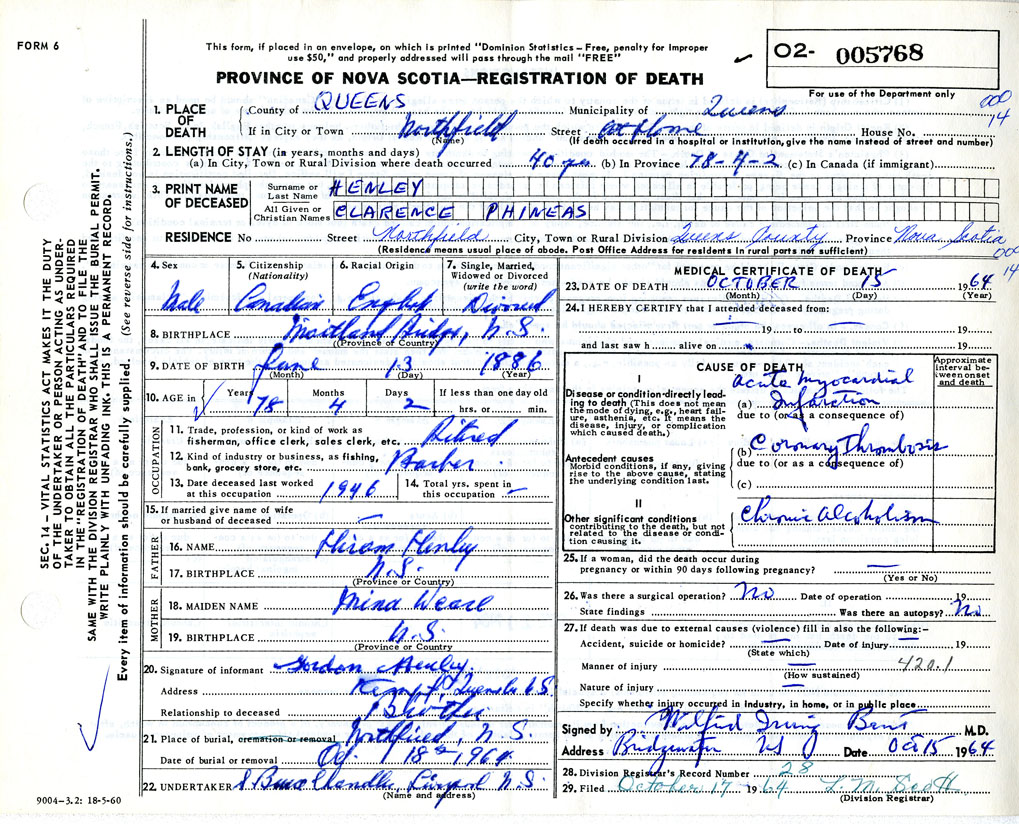 FORM 6
This form, if placed in an envelope, on which is printed "Dominion Statistics – Free, penalty for improper
use $50," and properly addressed will pass through the mail "FREE"
PROVINCE OF NOVA SCOTIA—REGISTRATION OF DEATH
O2- 005768
For use of the Department only
000
14
1. PLACE OF DEATH
County of QUEENS Municipality of Queens
If in City or Town Northfield Street At Home House No.
(Name) (If death occurred in a hospital or institution, give the name instead of street and number)
2. LENGTH OF STAY (in years, months and days)
(a) In City, Town or Rural Division where death occurred 40 yrs (b) In Province 78-4-2 (c) In Canada (if immigrant)
3. PRINT NAME OF DECEASED
Surname or Last Name HENLEY
All Given or Christian Names CLARENCE PHINEAS
RESIDENCE No Street Northfield City, Town or Rural Division Queens County Province Nova Scotia
(Residence means usual place of abode. Post Office Address for residents in rural parts not sufficient)
000
14
4. Sex 5. Citizenship (Nationality) 6. Racial Origin 7. Single, Married, Widowed or Divorced (write the word)
Male Canadian English Divorced
8. BIRTHPLACE Maitland Bridge, N.S.
(Province or Country)
9. DATE OF BIRTH June 13 1886
(Month) (Day) (Year)
10. AGE in Years 78 Months 4 Days 2 If less than one day old
hrs. or min.
OCCUPATION
11. Trade, profession, or kind of work as
fisherman, office clerk, sales clerk, etc. Retired
12. Kind of industry or business, as fishing,
bank, grocery store, etc. Barber
13. Date deceased last worked
at this occupation 1946
14. Total yrs. spent in
this occupation –
15. If married give name of wife
or husband of deceased —
FATHER
16. NAME Hiram Henley
17. BIRTHPLACE N.S.
(Province or Country)
MOTHER
18. MAIDEN NAME Mina Weare
19. BIRTHPLACE N.S.
(Province or Country
20. Signature of informant Gordon Henley.
Address Kempt, Queens Co N.S
Relationship to deceased Brother
21. Place of burial, cremation or removal Northfield, N.S.
Date of burial or removal Oct. 18th 1964
22. UNDERTAKER Chandler, Liverpool N.S.
(Name and address)
9004–3.2: 18-5-60
MEDICAL CERTIFICATE OF DEATH
23. DATE OF DEATH OCTOBER 15 1964
(Month) (Day) (Year)
24. I HEREBY CERTIFY that I attended deceased from:
— 19 to — 19
and last saw h alive on — 19
CAUSE OF DEATH
Approximate interval between onset and death
I
Disease or condition directly leading to death (This does not mean the mode of dying, e.g., heart failure, asthenia, etc. It means the disease, injury, or complication which caused death.)
(a) Acute Myocardial Infarction
due to (or as a consequence of)
Antecedent causes
Morbid conditions, if any, giving rise to the above cause, stating the underlying condition last.
(b) Coronary Thrombosis
due to (or as a consequence of)
(c)
II
Other significant conditions
contributing to the death, but not related to the disease or condition causing it.
Chronic Alcoholism
25. If a woman, did the death occur during
pregnancy or within 90 days following pregnancy? —
(Yes or No)
26. Was there a surgical operation? No Date of operation 19
State findings Was there an autopsy? No
27. If death was due to external causes (violence) fill in also the following:–
Accident, suicide or homicide? — Date of injury — 19
(State which)
Manner of injury — 420.1
(How sustained)
Nature of injury —
Specify whether injury occurred in Industry, in home, or in public place
Signed by Wilfrid Irving Bent M.D.
Address Bridgewater NS Date Oct 15 1964
28. Division Registrar's Record Number 28
29. Filed October 17 1964 L. M. Scott
(Division Registrar)
SEC. 14 – VITAL STATISTICS ACT MAKES IT THE DUTY
OF THE UNDERTAKER OR PERSON ACTING AS UNDER-
TAKER TO OBTAIN ALL THE PARTICULARS REQUIRED
IN THE "REGISTRATION OF DEATH" AND TO FILE THE
SAME WITH THE DIVISION REGISTRAR WHO SHALL ISSUE THE BURIAL PERMIT.
WRITE PLAINLY WITH UNFADING INK. THIS IS A PERMANENT RECORD.
Every item of information should be carefully supplied. (See reverse side for instructions.)